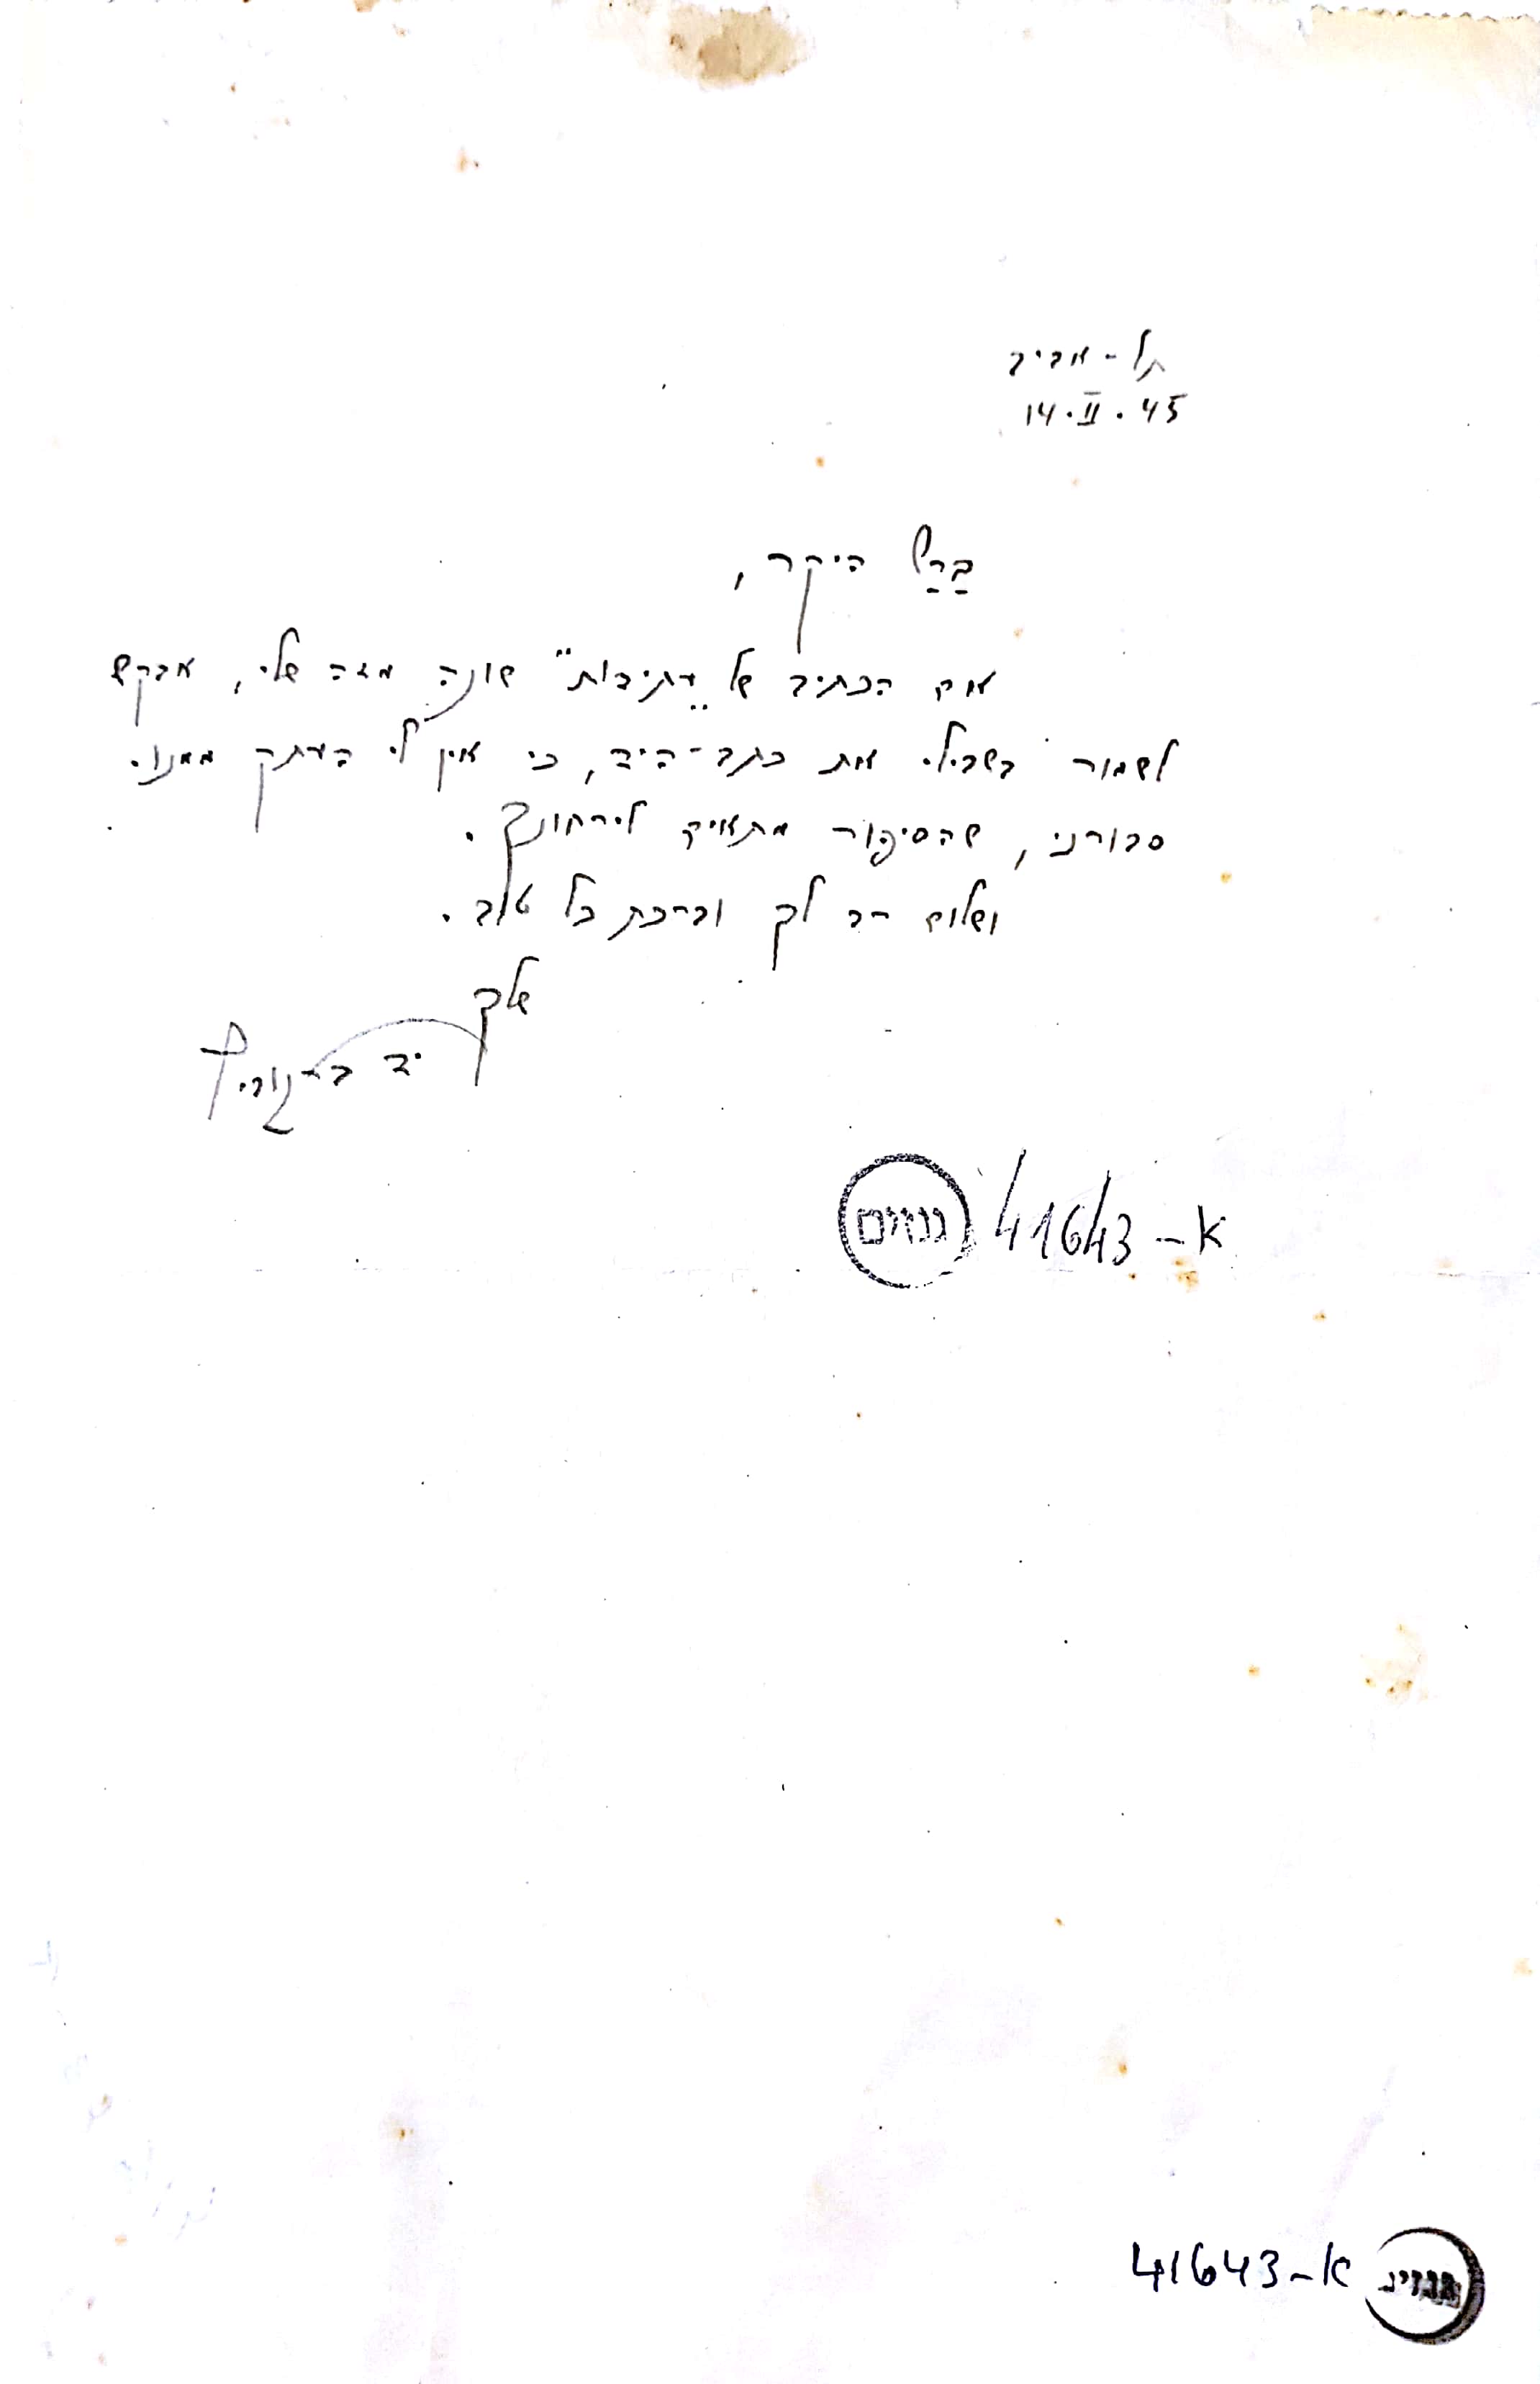 תל-אביב
14.II.45
ברל היקר,
אם הכתיב של "נתיבות" שונה מזה שלי, אבקש
לשמור בשבילי את כתב-היד, כי אין לי העתק ממנו.
סבורני, שהסיפור מתאים לירחונך.
ושלום רב לך וברכת כל טוב.
שלך
גנזים 41643-א
41643-א